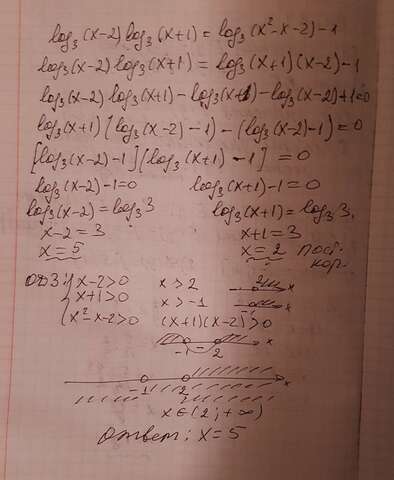 log₃(x-2) log₃(x+1) = log₃(x²-x-2) - 1
log₃(x-2) log₃(x+1) = log₃(x+1)(x-2) - 1
log₃(x-2) log₃(x+1) - log₃(x+1) - log₃(x-2) + 1 = 0
log₃(x+1) (log₃(x-2) - 1) - (log₃(x-2) - 1) = 0
[log₃(x-2) - 1] [log₃(x+1) - 1] = 0
log₃(x-2) - 1 = 0 log₃(x+1) - 1 = 0
log₃(x-2) = log₃ 3 log₃(x+1) = log₃ 3,
x-2 = 3 x+1 = 3
x = 5 x = 2 пост.
кор.
ОДЗ: { x-2>0 x>2 2 x
x+1>0 x>-1 -1 x
x²-x-2>0 (x+1)(x-2)>0
-1 - 2 x
-1 2 x
x∈(2; +∞)
Ответ: x=5